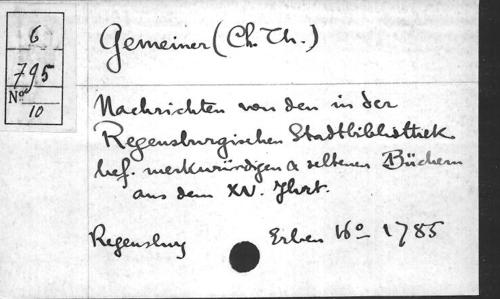 6
795
No
10
Gemeiner (Ch. Th.)
Nachrichten von den in der
Regensburgischen Stadtbibliothek
bef. merkwürdigen u seltenen Büchern
aus dem XV. Jhrt.
Regensburg Erben 16o 1785